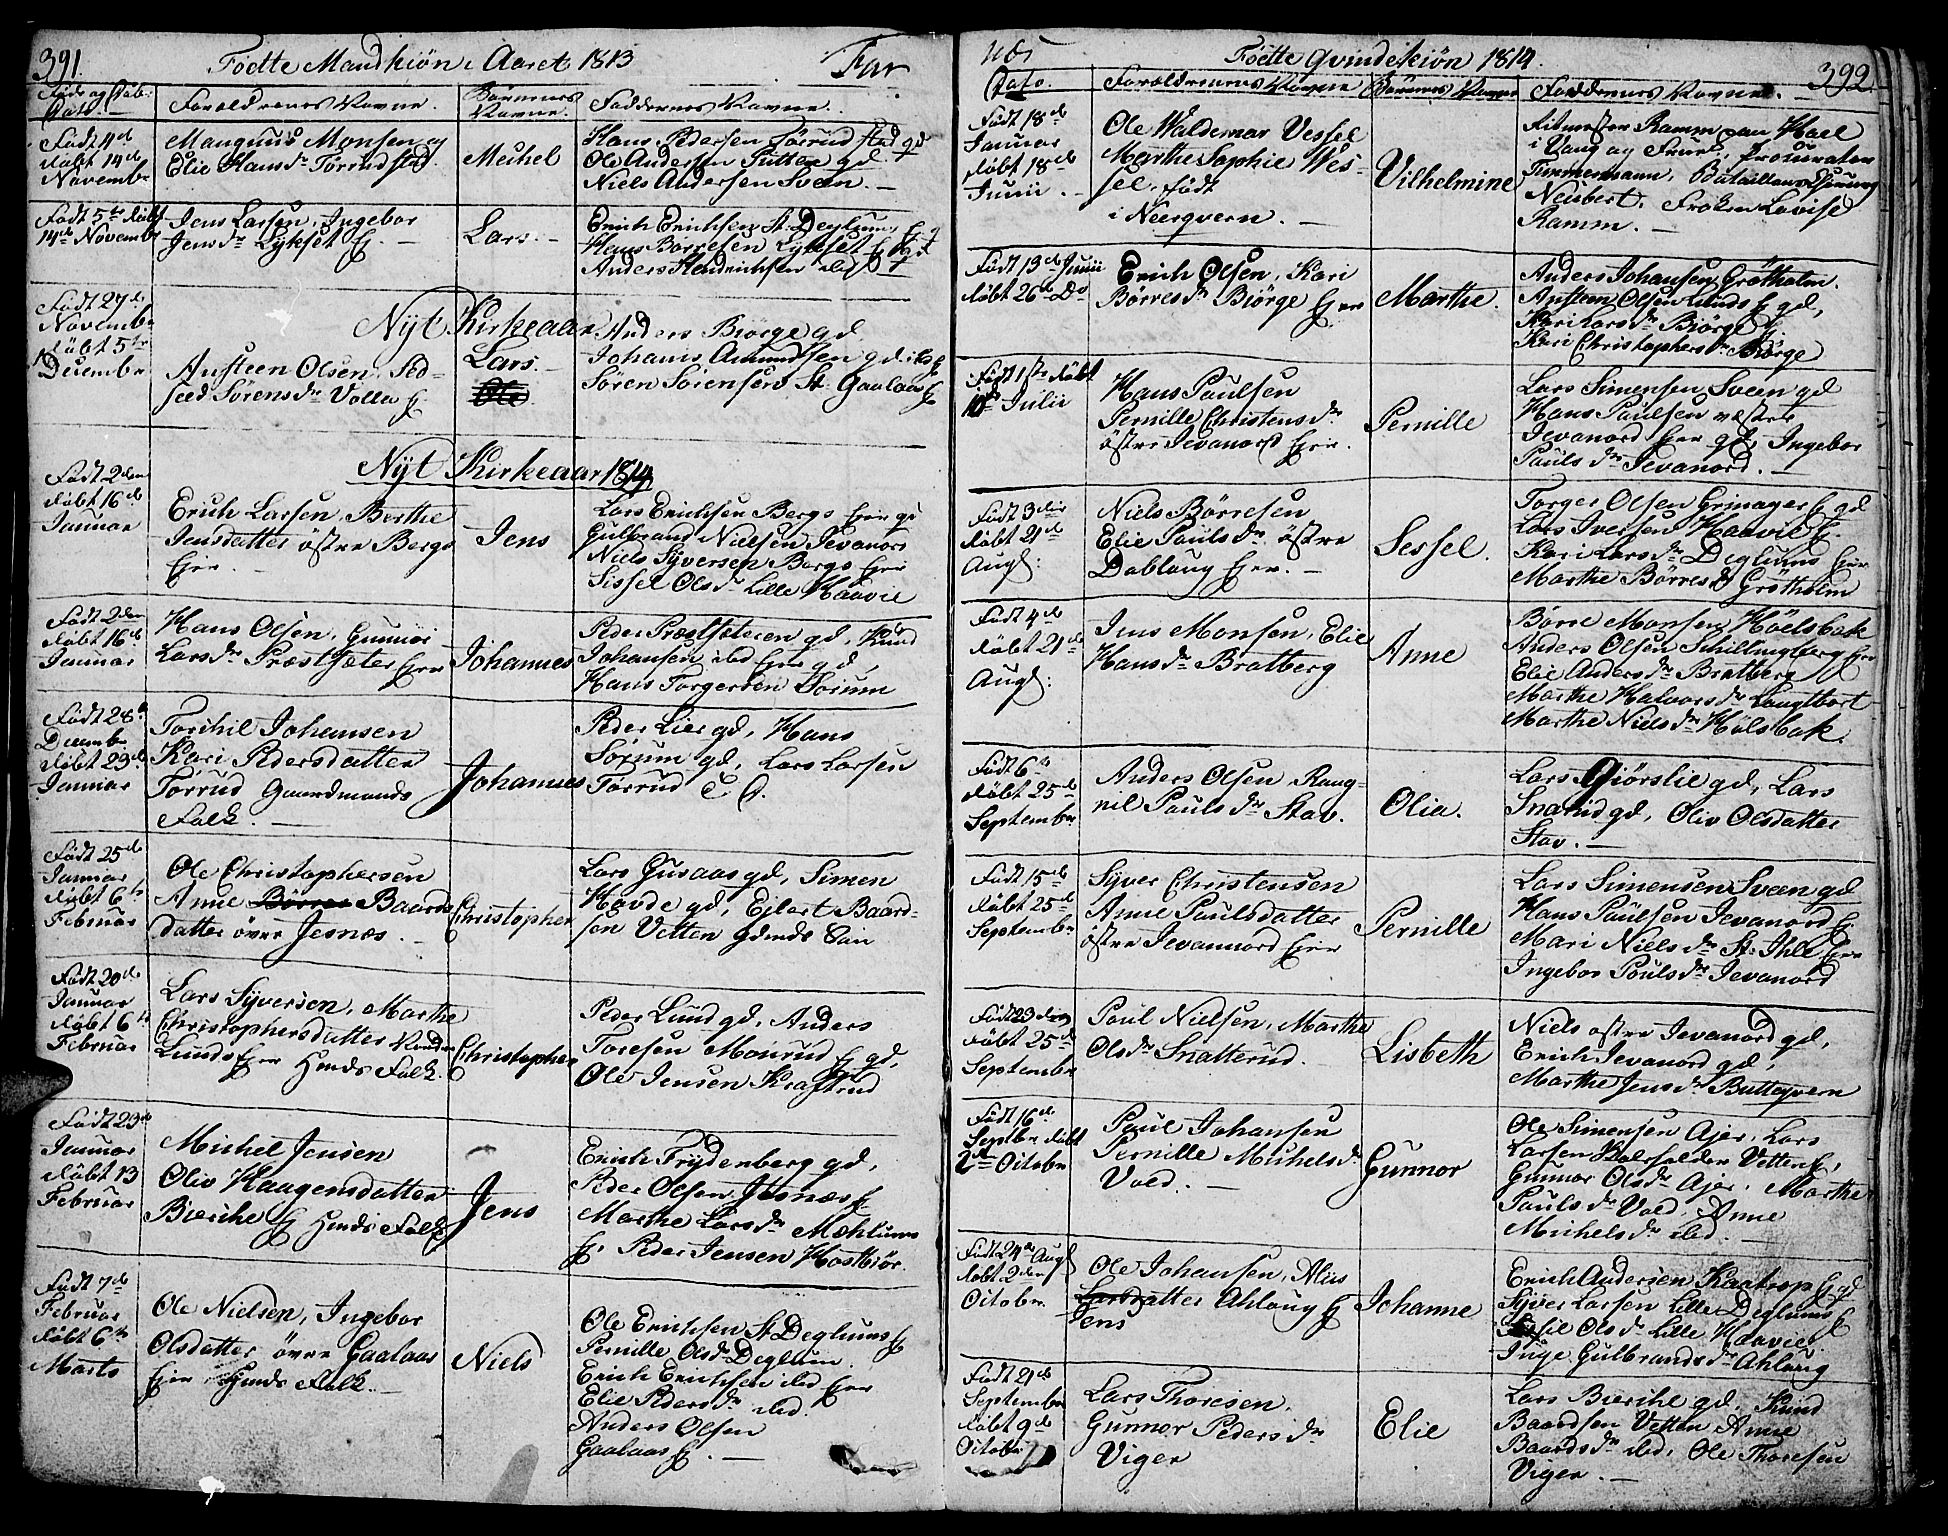 391.
Födte Mandkiön i Aaret 1813
Föde og Döb:
Dato.
Foroldrenes Navne.
Börnenes
Navne.
Faddernes Navne.
Födt 4de
döbt 14de
Novembr
Mangnus Monsen og
Elie Hansdr Törrudstad.
Michel
Hans Pedersen Törrudstad gd
Ole Andersen Sütten gd.
Niels Andersen Sveen. —
Födt 5te döbt
14de Novembr
Jens Larsen, Ingebor
Jensdr Lykset Ej. —
Lars. —
Erich Erichsen St: Deglum, Ej
Hans Börresen Lykset Ej gd
Anders Hendrichsen ibd
Födt 27de
Novembr
döbt 5te
Decembr
Nyt Kirkeaar
Austeen Olsen, Sed-
sel Sörensdr Volla Ej
Lars. —
Ole
Anders Biørge gd.
Johanis Amundsen gd
Sören Sörensen St. Gaalaas Ej
Nyt Kirkeaar 1814
Födt 2den
döbt 16de
Januar
Erich Larsen, Berthe
Jensdatter östre Bergs
Ejer. —
Jens
Lars Erichsen Bergs Ejer gd
Gulbrand Nielsen Jevanord
Niels Syversen Bergs Ejer
Sissel Olsdr Lille Haavie
Födt 2den
döbt 16de
Januar
Hans Olsen, Gunnor
Larsdr Præstsæter Ejer
Johannes
Peder Præstsæteren gd, Knud
Johansen ibd Ejer gd,
Hans Torgersen Sorum
Födt 28de
Decembr
döbt 23de
Januar
Torchil Johansen
Kari Pedersdatter
Törrud Gaardmands
Folk. —
Johannes
Peder Lier gd, Hans
Sörum gd, Lars Larsen
Törrud
Födt 25de
Januar
döbt 6te
Februar
Ole Christophersen
Anne Börres Baards
datter övre Jesnæs. —
Christopher
Lars Gusaas gd, Simen
Hovde gd, Ejlert Baard-
sen Vetten
Födt 20de
Januar
döbt 6te
Februar
Lars Syversen, Marthe
Christophersdatter
Lunds Ejer Hmds Folk.
Christopher
Peder Lund gd, Anders
Toresen Monrud Ej gd,
Ole Jensen Kraftrud
Födt 23de
Januar
döbt 13
Februar
Michel Jensen
Oliv Haagensdatter
Bierche Ej Hmds Folk
Jens
Erich Frydenberg gd,
Peder Olsen Jesnæs Ej
Marthe Larsdr Mæhlums
Ej. Peder Jensen Kostbiør.
Födt 7de
Februar
döbt 6te
Marts
Ole Nielsen, Ingebor
Olsdatter övre Gaalaas
Ejer Hmds Folk. —
Niels
Ole Erichsen St Deglums Ej
Pernille Olsdr Deglum.
Erich Erichsen ibd Ejer
Elie Pedersdr ibd.
Anders Olsen
Gaalaas Ej. —
392.
Födte Qvindekiön 1814.
Dato.
Foroldrenenes Navne
Börnenes Navne
Faddernes Navne. —
Födt 18de
Januar
döbt 18de
Junii. —
Ole Waldemar Vessel
Marthe Sophie Wes-
sel, födt
i Neerqvern. —
Vilhelmine
Ritmester Ramm paa Hoel
i Vang og Frue, Procurator
Timmermann, Bataillons
Neubert, Frøken Lovise
Ramm. —
Födt 13de Junii
döbt 26de Do
Erich Olsen, Kari
Börresdr Biørge Ejer
Marthe.
Anders Johansen Grötholm.
Austeen Olsen Lunds Ej gd,
Kari Larsdr Biørge
Kari Christophersdr Biørge
Födt 1ste döbt
10de Julii
Hans Paulsen
Pernille Christensdr
östre Jevanord Ejer.
Pernille
Lars Simensen Sveen gd
Hans Paulsen væstre
Jevanord Ejer gd, Ingebor
Paulsdr Jevanord. —
Födt 3die
döbt 21de
Augs:
Niels Börresen
Elie Paulsdr östre
Dabloug Ejer. —
Sessel.
Torger Olsen Grinager Ej gd
Lars Iversen Haavie Ej.
Kari Larsdr Deglums Ejer
Marthe Börresdr Grötholm
Födt 4de
döbt 21de
Augs:
Jens Monsen, Elie
Hansdr Bratberg
Anne
Börre Monsen Hölsbak
Anders Olsen Schillingberg Ejer
Elie Andersdr Bratberg
Marthe Halvorsdr
Marthe Nielsdr Hölsbak.
Födt 6te
döbt 25de
Septembr
Anders Olsen Rang-
nil Paulsdr Stav.
Olia.
Lars Giörslie gd, Lars
Snarud gd, Oliv Olsdatter
Stav. —
Födt 15de
döbt 25de
Septembr
Syver Christensen
Anne Paulsdatter
östre Jevannord Ejer
Pernille
Lars Simensen Sveen gd
Hans Paulsen Jevanord Ej
Mari Nielsdr St: Ihle Ejer
Ingebor Poulsdr Jevanord
Födt 23den
döbt 25de
Septembr
Poul Nielsen, Marthe
Olsdr Snatterud.
Lisbeth
Niels östre Jevanord gd,
Erich Jevanord gd,
Marthe Jensdr Butteqvern
Födt 16de
Septbr döbt
2den Octobr
Paul Johansen
Pernille Michelsdr
Vold. —
Gunnor
Ole Simensen Ajer, Lars
Larsen Vetten Ej,
Gunnor Olsdr Ajer, Marthe
Paulsdr Vold, Anne
Michelsdr ibd. —
Födt 24de Augs
döbt 2den
Octobr.
Ole Johansen, Alis
Larsdatter Ahloug Ej
Jens
Johanne
Erich Andersen Kaatrop Ej gd
Syver Larsen Lille Deglums Ej
Sessil Olsdr Lille Haavie
Inge Gulbrandsdr Ahloug
Födt 21de
Septembr
döbt 9de
Octobr
Lars Thoresen,
Gunnor Pedersdr
Viger
Elie
Lars Bierche gd, Knud
Baardsen Vetten Anne
Baardsdr ibd, Ole Thoresen
Viger. —